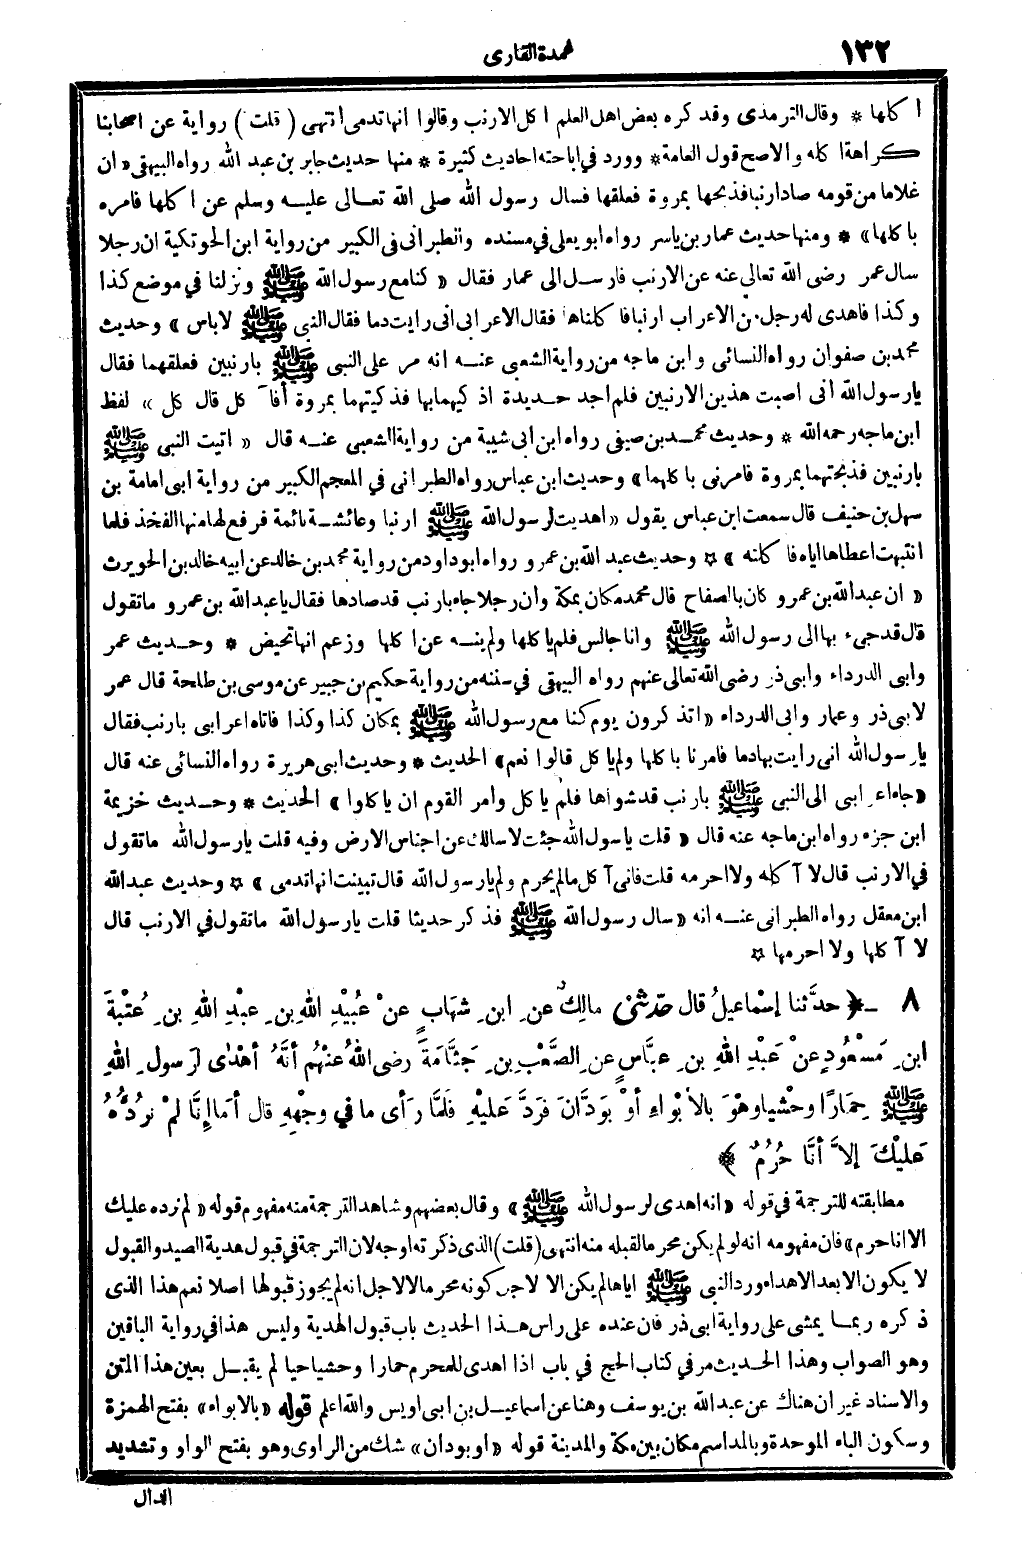 ١٣٢
عمدة القارى
اكلها * وقال الترمذى وقد كره بعض اهل العلم اكل الارنب وقالوا انها تدمى انتهى (قلت) رواية عن اصحابنا
كراهة اكله والاصح قول العامة * وورد فى اباحته احاديث كثيرة * منها حديث جابر بن عبد الله رواه البيهقى «ان
غلاما من قومه صاد ارنبا فذبحها بمروة فعلقها فسال رسول الله صلى الله تعالى عليه وسلم عن اكلها فامره
باكلها» * ومنها حديث عمار بن ياسر رواه ابو يعلى فى مسنده والطبرانى فى الكبير من رواية ابن الحوتكية ان رجلا
سال عمر رضى الله تعالى عنه عن الارنب فارسل الى عمار فقال «كنا مع رسول الله ﷺ ونزلنا فى موضع كذا
وكذا فاهدى له رجل من الاعراب ارنبا فاكلناها فقال الاعرابى انى رايت دما فقال النبى ﷺ لا باس» وحديث
محمد بن صفوان رواه النسائى وابن ماجه من رواية الشعبى عنه انه مر على النبى ﷺ بارنبين فعلقهما فقال
يارسول الله انى اصبت هذين الارنبين فلم اجد حديدة اذكيهما بها فذكيتهما بمروة أفآكل قال كل» لفظ
ابن ماجه رحمه الله * وحديث محمد بن صيفى رواه ابن ابى شيبة من رواية الشعبى عنه قال «اتيت النبى ﷺ
بارنبين فذبحتهما بمروة فامرنى باكلهما» وحديث ابن عباس رواه الطبرانى فى المعجم الكبير من رواية ابى امامة بن
سهل بن حنيف قال سمعت ابن عباس يقول «اهديت لرسول الله ﷺ ارنبا وعائشة نائمة فرفع لها منها الفخذ فلما
انتبهت اعطاها اياه فاكلته» * وحديث عبد الله بن عمرو رواه ابو داود من رواية محمد بن خالد عن ابيه خالد بن الحويرث
«ان عبد الله بن عمرو كان بالصفاح قال محمد مكان بمكة وأن رجلا جاء بارنب قد صادها فقال يا عبد الله بن عمرو ما تقول
قال قد جىء بها الى رسول الله ﷺ وانا جالس فلم ياكلها ولم ينه عن اكلها وزعم انها تحيض * وحديث عمر
وابى الدرداء وابى ذر رضى الله تعالى عنهم رواه البيهقى فى سننه من رواية حكيم بن جبير عن موسى بن طلحة قال عمر
لابى ذر وعمار وابى الدرداء «اتذكرون يوم كنا مع رسول الله ﷺ بمكان كذا وكذا فاتاه اعرابى بارنب فقال
يارسول الله انى رايت بها دما فامرنا باكلها ولم ياكل قالوا نعم» الحديث * وحديث ابى هريرة رواه النسائى عنه قال
«جاء اعرابى الى النبى ﷺ بارنب قد شواها فلم ياكل وامر القوم ان ياكلوا» الحديث * وحديث خزيمة
ابن جزء رواه ابن ماجه عنه قال «قلت يا رسول الله جئت لاسالك عن اجناس الارض وفيه قلت يارسول الله ما تقول
فى الارنب قال لا آكله ولا احرمه قلت فانى آكل مالم يحرم ولم يارسول الله قال تبينت انها تدمى» * وحديث عبد الله
ابن معقل رواه الطبرانى عنه انه «سال رسول الله ﷺ فذكر حديثا قلت يارسول الله ما تقول فى الارنب قال
لا آكلها ولا احرمها *
٨ - ﴿ حدَّثنا إسْماعيلُ قال حدّثنى مالِكٌ عن ابنِ شِهَابٍ عنْ عُبَيْدِ اللهِ بنِ عبْدِ اللهِ بنِ عُتْبَةَ
ابنِ مَسْعُودٍ عنْ عَبْدِ اللهِ بنِ عبَّاسٍ عنِ الصَّعْبِ بنِ جَثَّامَةَ رضى اللهُ عنْهُم أنَّهُ أهْدَى لرَسولِ اللهِ
ﷺ حِمَارًا وحْشيا وهْوَ بالأبْواءِ أوْ بوَدَّانَ فَردَّ عَليْهِ فلَمَّا رَأى ما فى وجْهِهِ قال أمَا إنَّا لَمْ نَرُدَّهُ
عَليْكَ إلاَّ أنَّا حُرُمٌ ﴾
مطابقته للترجمة فى قوله «انه اهدى لرسول الله ﷺ» وقال بعضهم وشاهد الترجمة منه مفهوم قوله «لم نرده عليك
الا انا حرم» فان مفهومه انه لو لم يكن محرما لقبله منه انتهى (قلت) الذى ذكرته اوجه لان الترجمة فى قبول هدية الصيد والقبول
لا يكون الا بعد الاهداء ورد النبى ﷺ اياها لم يكن الا لاجل كونه محرما لا لاجل انه لم يجوز قبولها اصلا نعم هذا الذى
ذكره ربما يمشى على رواية ابى ذر فان عنده على راس هذا الحديث باب قبول الهدية وليس هذا فى رواية الباقين
وهو الصواب وهذا الحديث مر فى كتاب الحج فى باب اذا اهدى للمحرم حمارا وحشيا حيا لم يقبل بعين هذا المتن
والاسناد غير ان هناك عن عبد الله بن يوسف وهنا عن اسماعيل بن ابى اويس والله اعلم قوله «بالابواء» بفتح الهمزة
وسكون الباء الموحدة وبالمد اسم مكان بين مكة والمدينة قوله «او بودان» شك من الراوى وهو بفتح الواو وتشديد
الدال